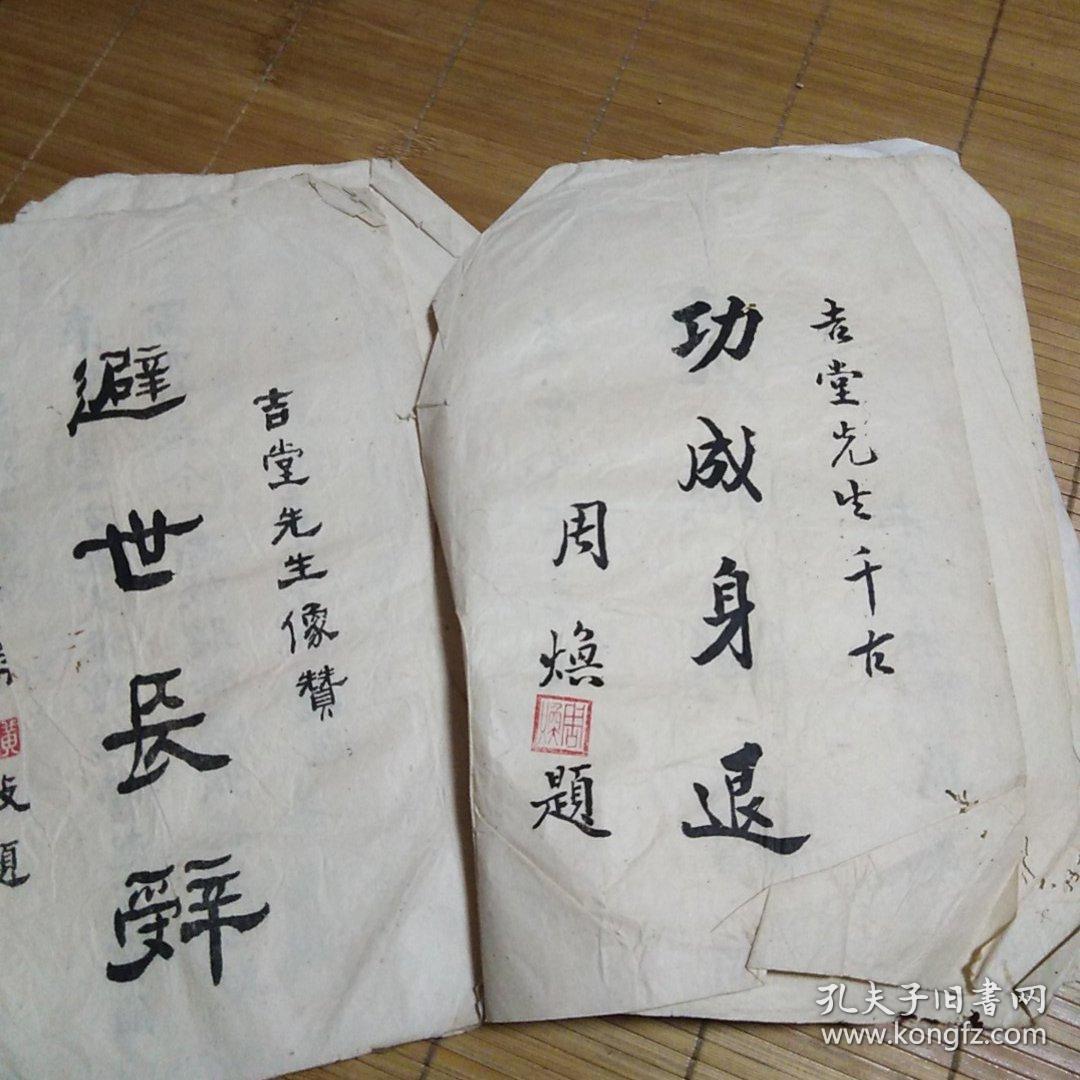 吉堂先生千古
功成身退
周焕題
周焕
吉堂先生像贊
避世長辤
黄
題
孔夫子旧书网
www.kongfz.com